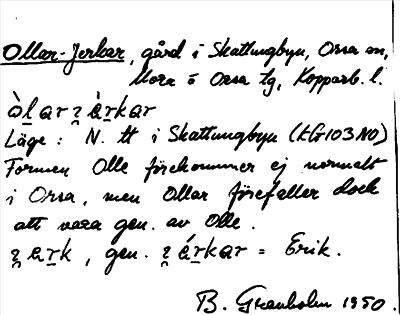 Ollar-Jerkar, gård i Skattungbyn, Orsa sn,
Mora o Orsa tg, Kopparb. l.
Läge: N. tt i Skattungbyn (EG103NO)
Formen Olle förekommer ej normalt
i Orsa, men Ollar förefaller dock
att vara gen. av Olle.
gen. = Erik.
B. Granholm 1950.